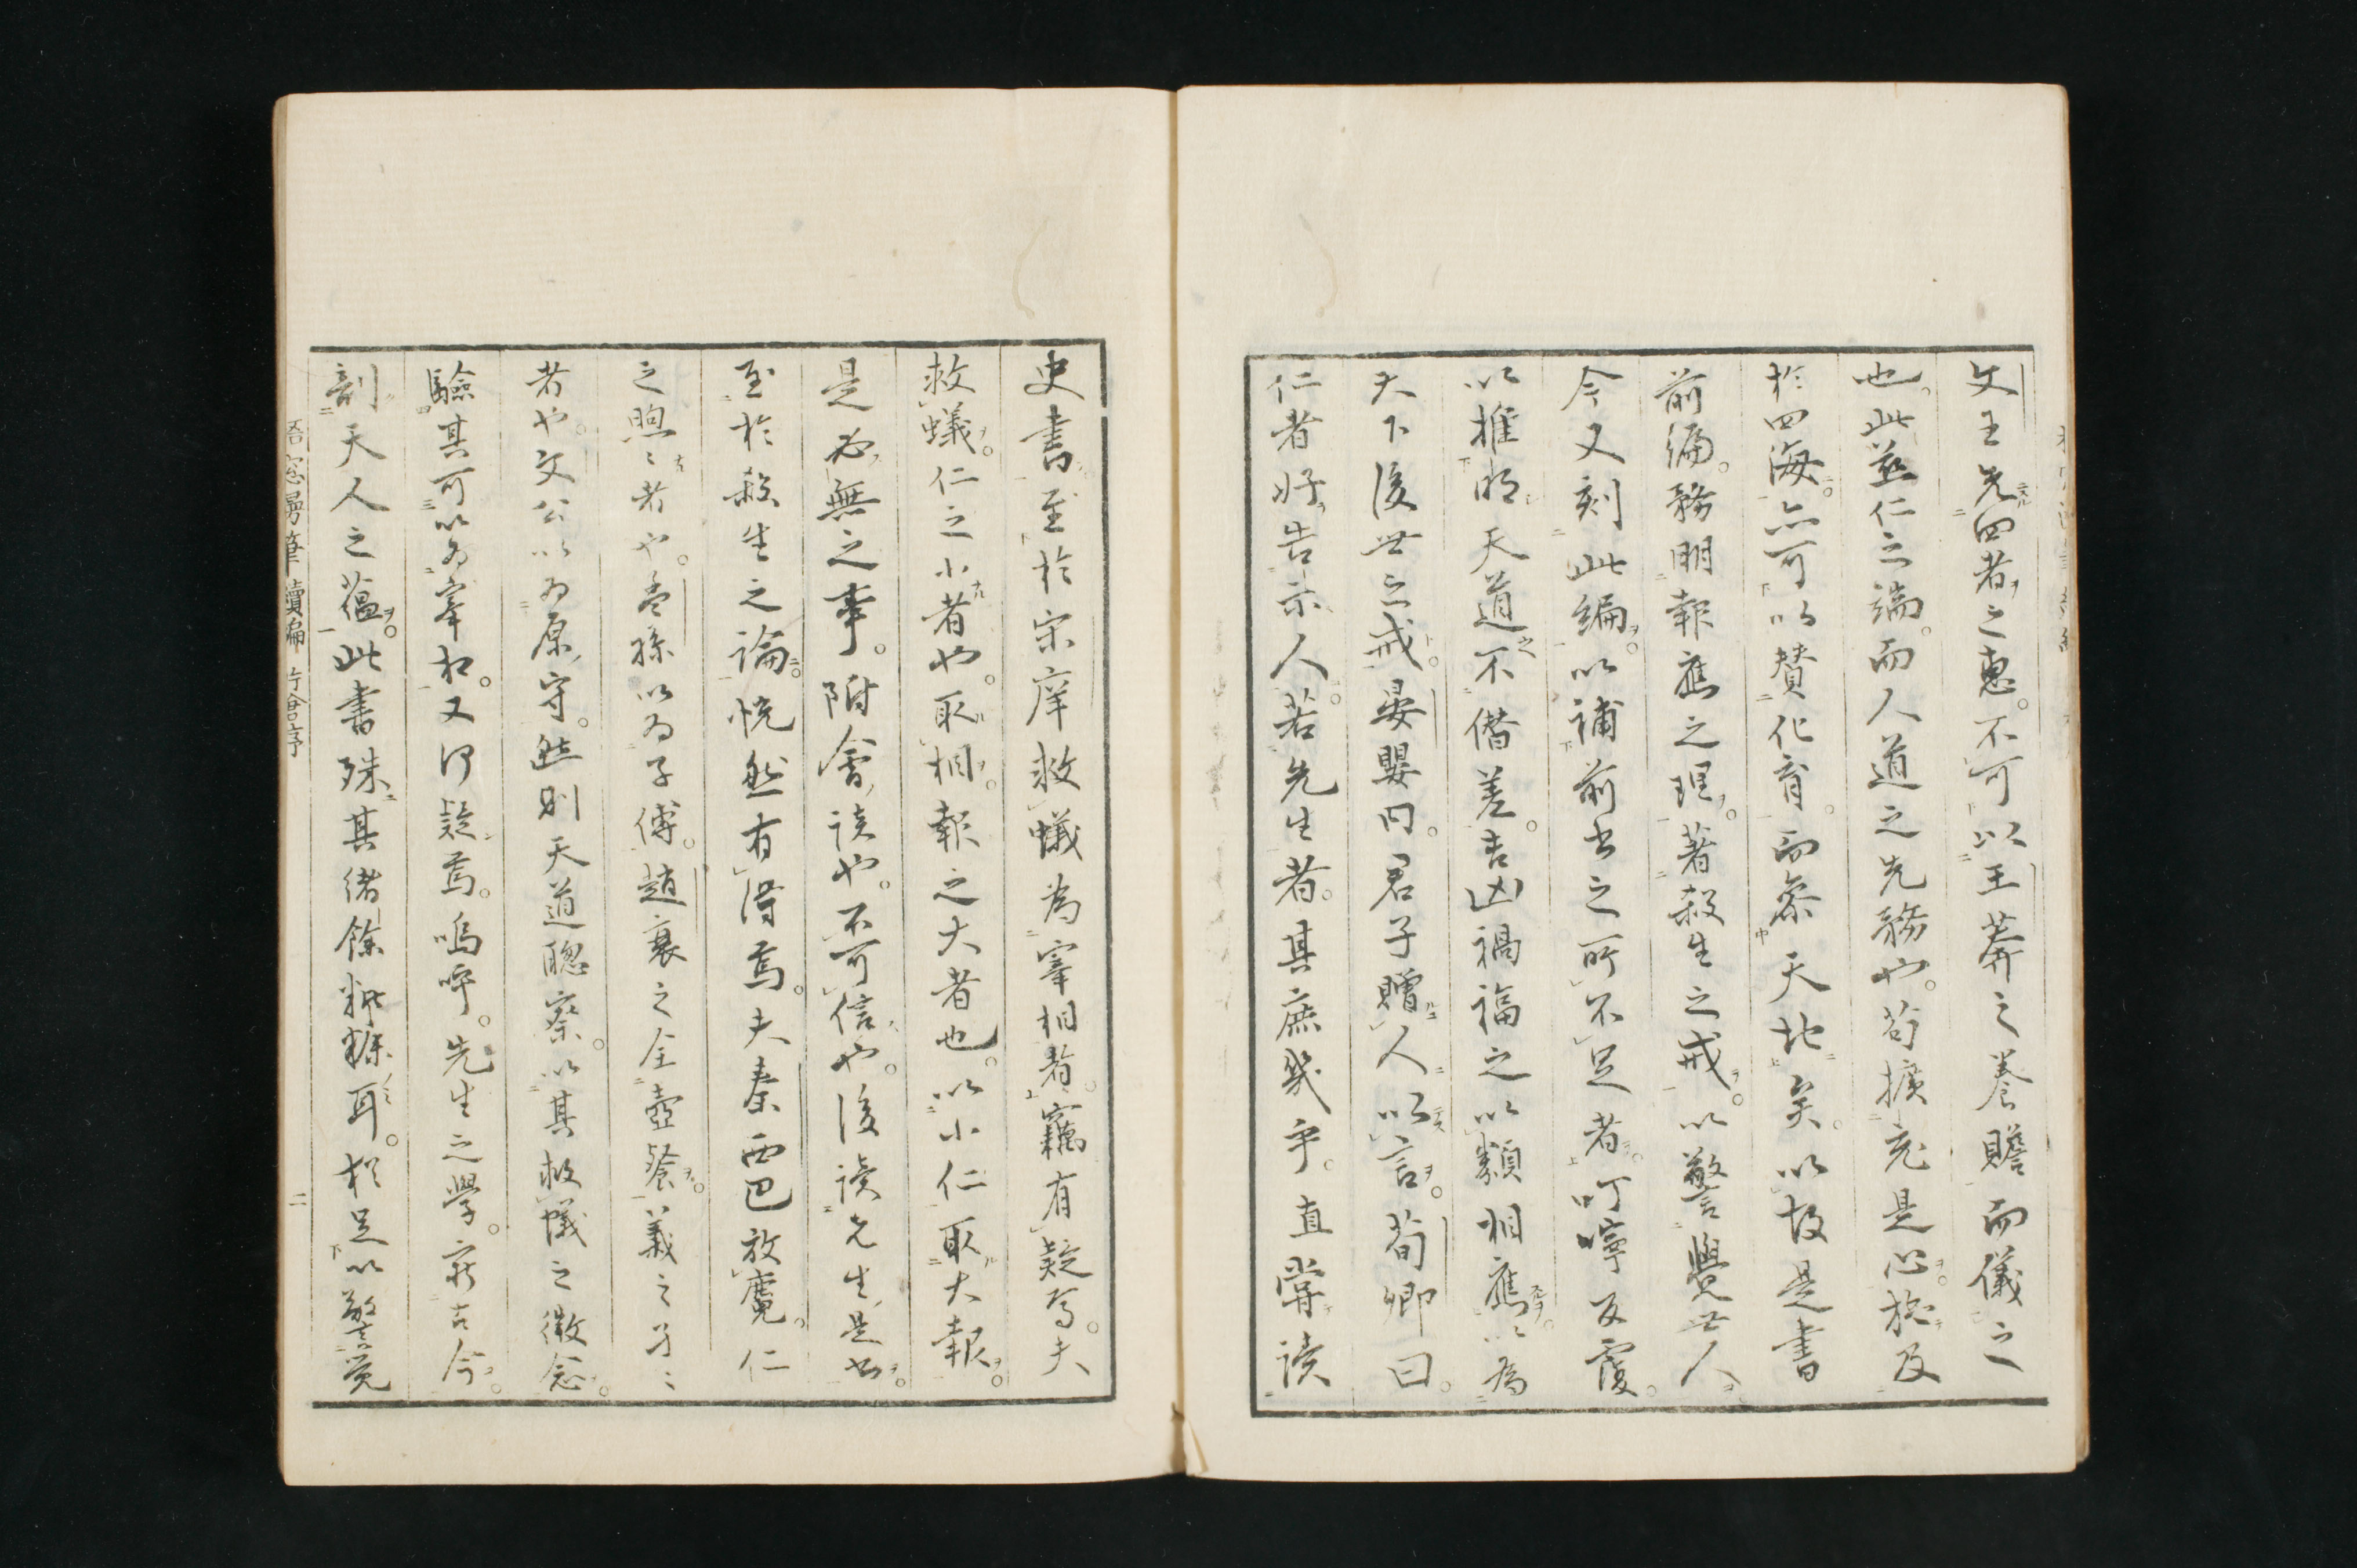 文王先四者之惠。不可以王莽之養贍而儀之
也。此並仁之端。而人道之先務也。苟擴充是心。施及
於四海。亦可以賛化育。而參天地矣。以故是書
前編。務明報應之理。著殺生之戒。以警覺世人。
今又刻此編。以補前書之所不足者。叮嚀反覆。
以推明天道之不僭差。吉凶禍福之以類相應。以為
天下後世之戒。晏嬰曰。君子贈人以言。荀卿曰。
仁者好告示人。若先生者。其庶幾乎。直嘗讀
史書。至於宋庠救蟻為宰相者。竊有疑焉。夫
救蟻。仁之小者也。取相。報之大者也。以小仁取大報。
是必無之事。附會談也。不可信也。後讀先生是書。
至於殺生之論。恍然有得焉。夫秦西巴放麑。仁
之煦〻者也。孟孫以為子傅。趙衰之全壺飱。義之孑〻
者也。文公以為原守。然則天道聰察。以其救蟻之微念。
驗其可以為宰相。又何疑焉。嗚呼。先生之學。究古今。
剖天人之蘊。此書殊其緒餘粃糠耳。猶足以警覚
梧窓漫筆續編 序 二